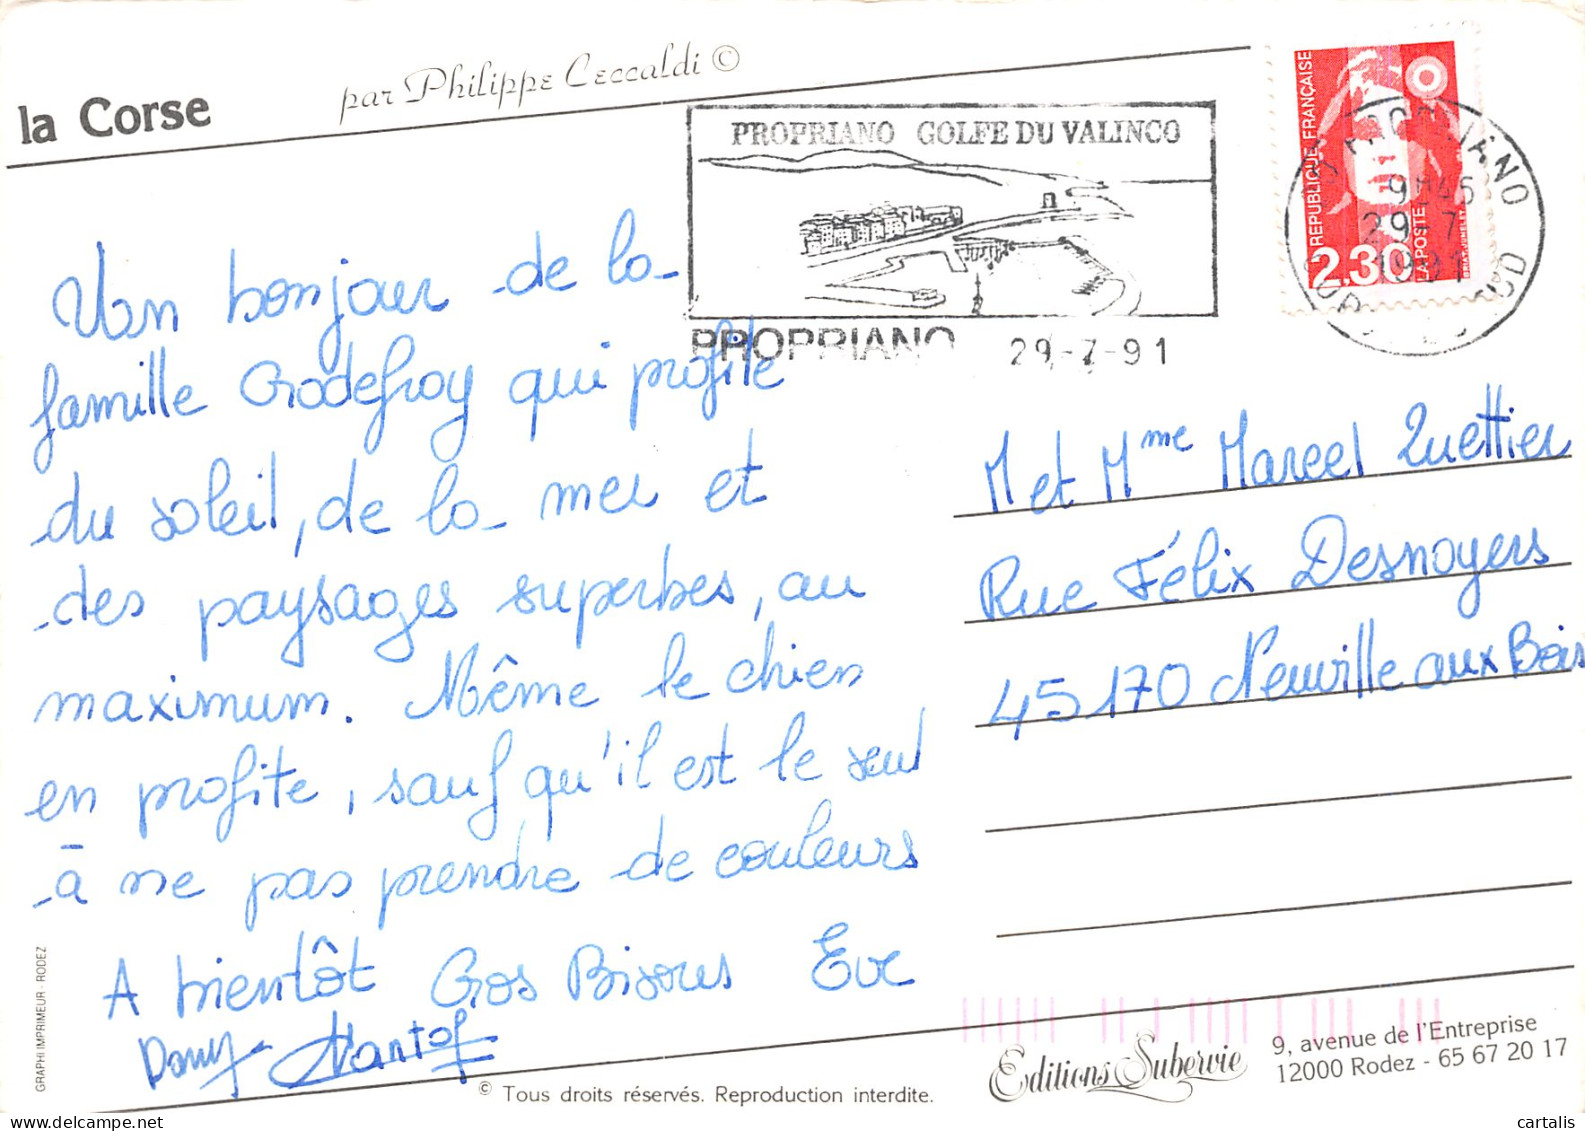 la Corse
par Philippe Ceccaldi ©
PROPRIANO GOLFE DU VALINCO
PROPRIANO 29-7-91
REPUBLIQUE FRANÇAISE
2,30
LA POSTE
29-7
1991
Un bonjour de la
famille Godefroy qui profite
du soleil, de la mer et
des paysages superbes, au
maximum. Même le chien
en profite, sauf qu'il est le seul
à ne pas prendre de couleurs
A bientôt Gros Bisous Eve
M et Mme Marcel Quettier
Rue Félix Desnoyers
45170 Neuville aux Bois
GRAPHI IMPRIMEUR - RODEZ
© Tous droits réservés. Reproduction interdite.
Editions Subervie
9, avenue de l'Entreprise
12000 Rodez - 65 67 20 17
delcampe.net
cartalis